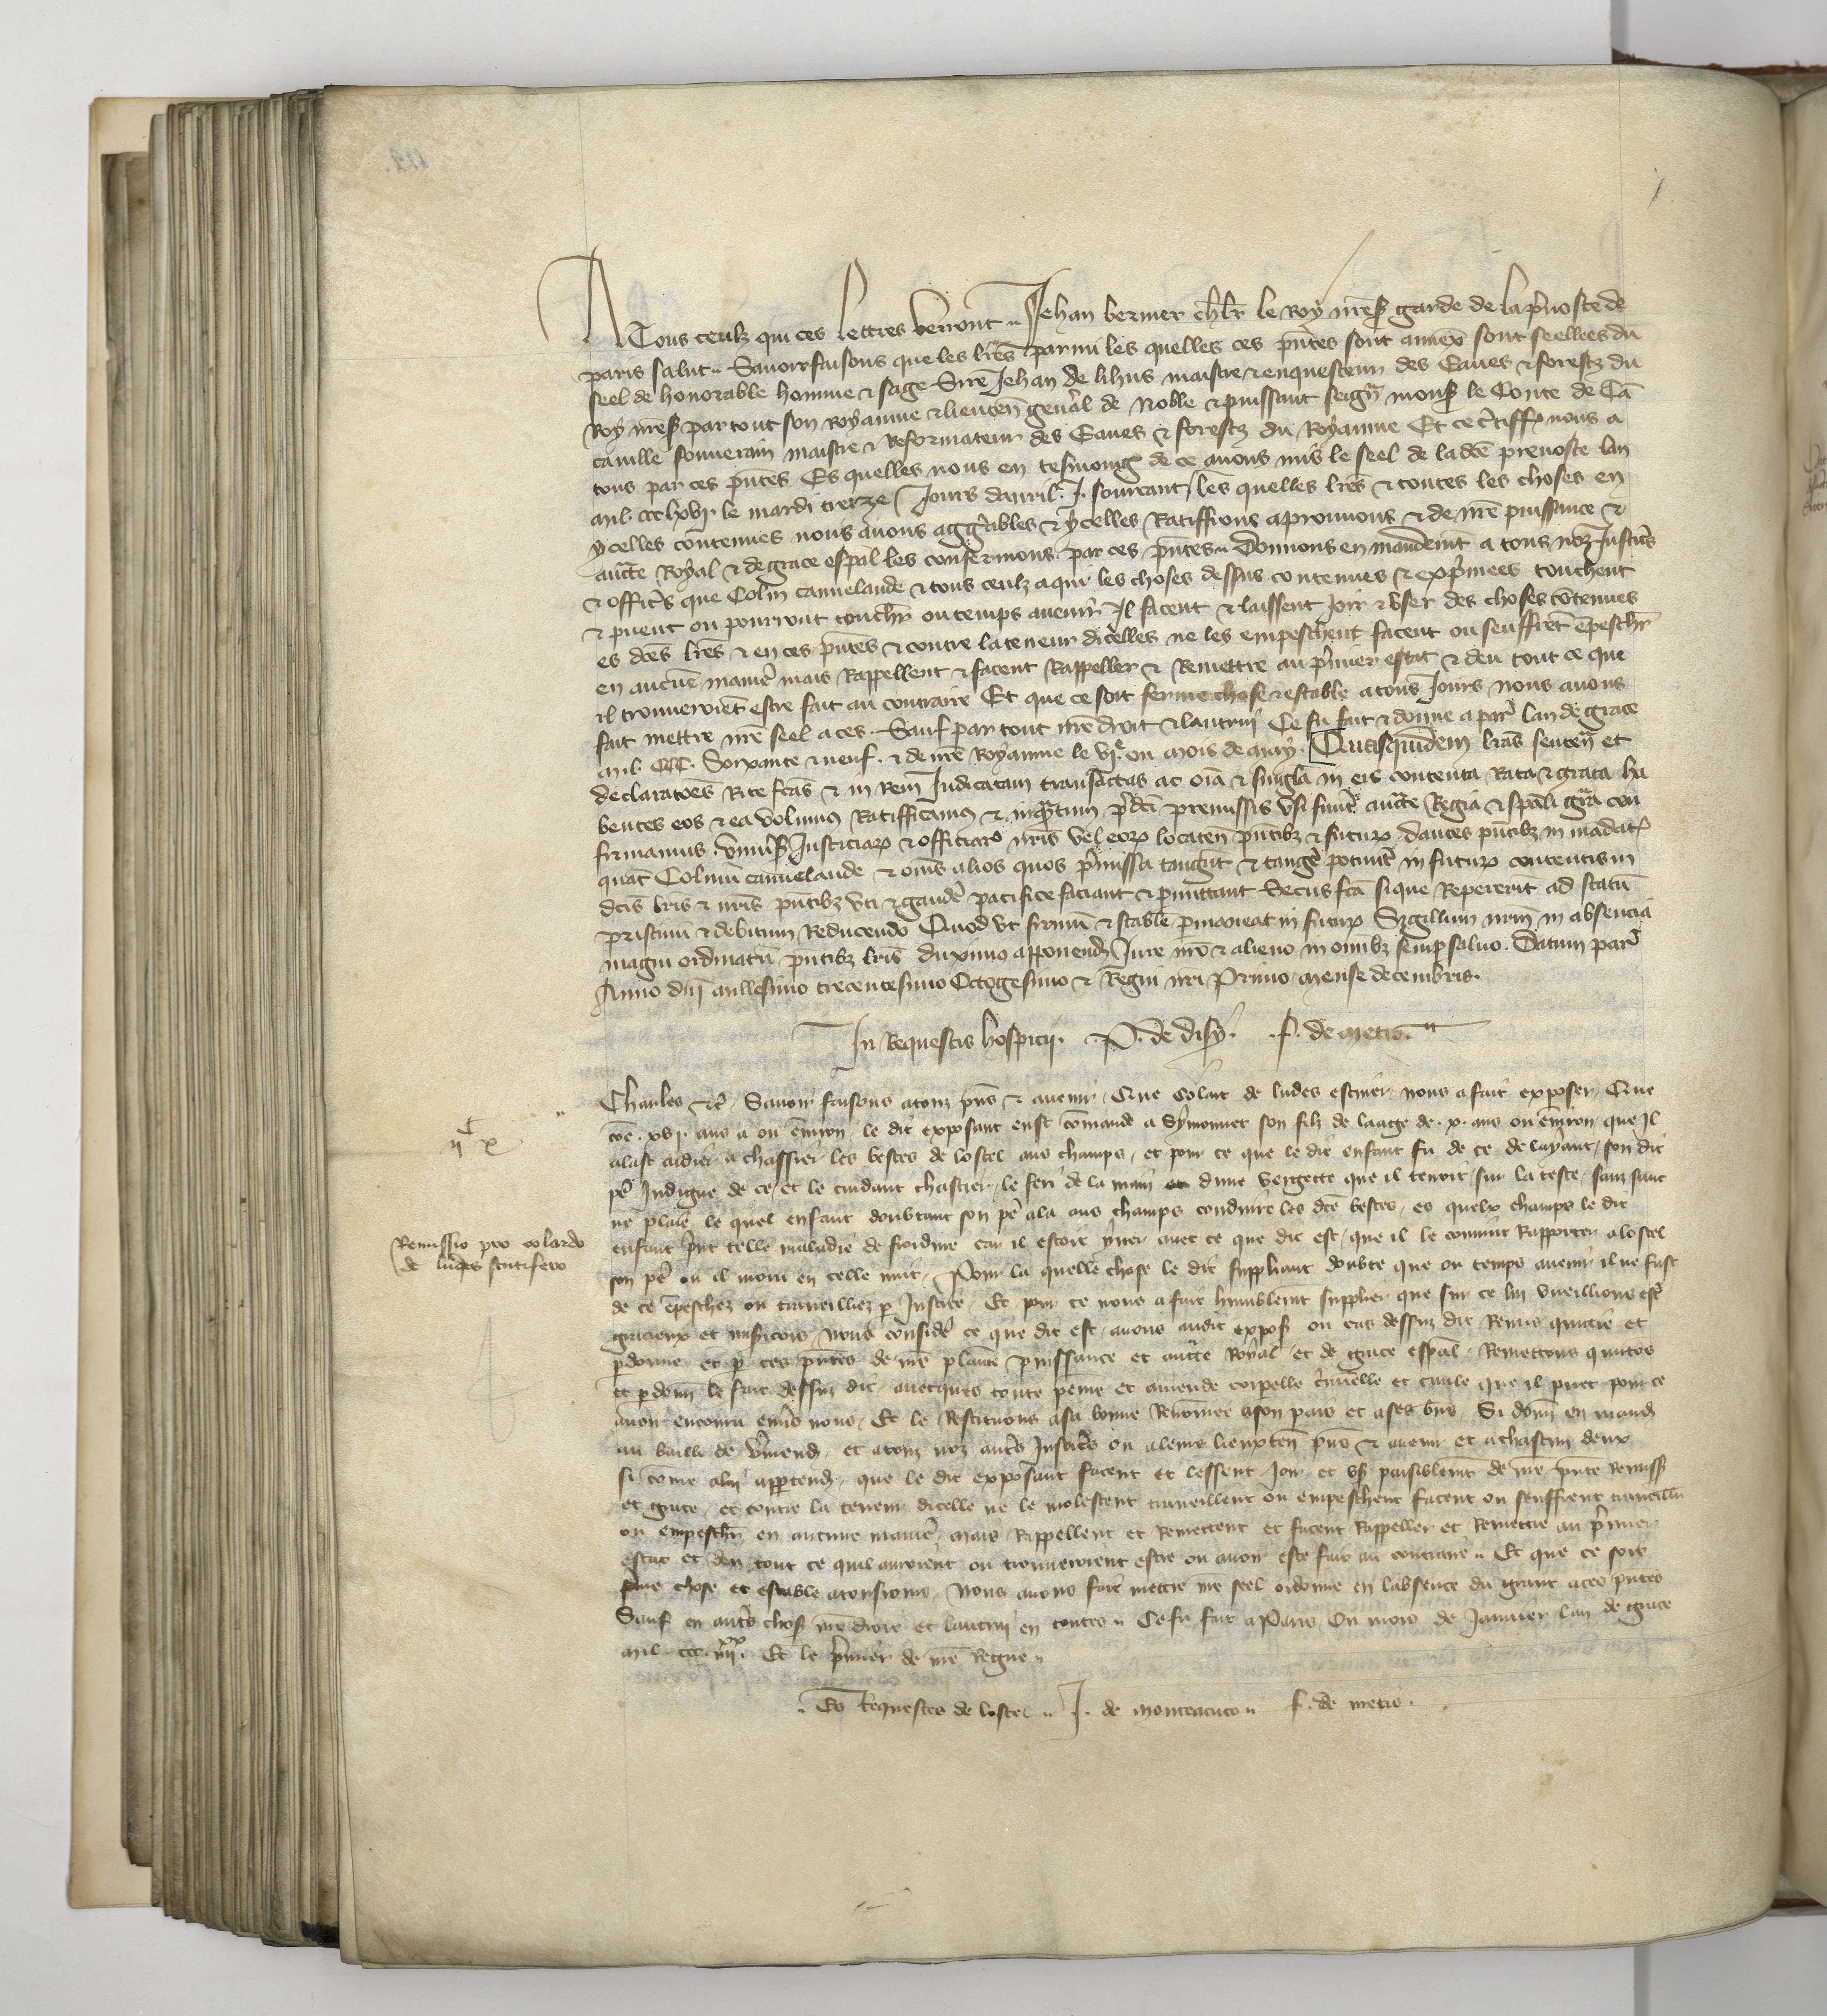 A Tous ceulz qui ces lettres verront Jehan bernier chlr le Roy nrēs garde de la p̄uoste de
paris salut Sauoir faisons que les lrēs parmi les quelles ces pn̄tes sont annex̄ sont seellees du
seel de honorable homme & sage Sire Jehan de lihus maistre & enquesteur des Eaues & forestz du
Roy nrēs par tout son Royaume & lieuteñ genāl de Noble & puissant seigñ mons le Conte de Tā
caruille souuerain maistre & Reformateur des Eaues & forestz du Royaume Et ce c̄tiffions nous a
tous par ces pn̄tes Es quelles nous en tesmoing de ce auons mis le seel de la dc̄e preuoste lan
mil ccc lxvj le mardi treze Jours dauril J. sourcant les quelles lrēs & toutes les choses en
ycelles contenues nous auons aggreables & ycelles Ratiffions aprouuons & de nrē puissance &
auct̄e Royal & de grace esp̄al les confermons par ces pn̄tes Donnons en mandem̄t a tous noz Justic̄s
& offic̄s que Colin canuelande & tous ceulz a qui les choses dessus contenues & exp̄mees touchent
& puent ou pourront touch̄r ou temps auenir Il facent & laissent Joir & vser des choses cōtenues
es dc̄es lrēs & en ces pn̄tes & contre la teneur dicelles ne les empeschent facent ou seuffrēt ēpesch̄r
en aucuē manier̄ mais Rappellent & facent Rappeller & Remettre au p̄mier estat & deu tout ce que
il trouueroiēt estre fait au contraire Et que ce soit ferme chose & estable a tous Jours nous auons
fait mettre nrē seel a ces Sauf par tout nrē droit & lautrui Ce fu fait & donne a par̄ lan de grace
mil CCC Soixante & neuf & de nrē Royaume le vjᵉ ou mois de may Quasquidem lrās senten̄ et
declaratōes Rite fc̄as & in Rem Judicatam transactas ac oīa & singla in eis contenta Rata & grata ha
bentes eos & ea volumus Ratifficamus & inq̄tum p̄dc̄i premissis vsi fuer̄t auct̄e Regia & sp̄ali grā con
firmamus vniu̅s Justiciar̄ & officiar̄ nrīs vel eor̄ locateñ pn̄tibz & futur̄ dantes pn̄tibz in mādat̄
quāt Colinū canuelande & oms alios quos p̄missa tangūt & tang̅e potuīt in futur̄ contentis in
dc̄is lrīs & nrīs pn̄tibz vti & gaudē pacifice faciant & p̄mittant Secus fc̄a si que Repererīt ad statū
pristinū & debitum Reducendo Quod vt firmū & stabile p̄maneat in futur̄ Sigillum nrm̄ in absencia
magni ordinatū pn̄tibz lrīs duximus apponend̄ Jure nrō & alieno in omībz semp̄ saluo Datum par̄
Anno dn̄i millesimo trecentesimo Octogesimo & Regni nrī Primo mense decembris.
In Requestis hospicij. P. de disy. f. de metis.
Charles &c̄ Sauoir faisons a toz pn̄s & auenir Que Colart de ludes escuier nous a fait exposer Que
cōe xvj ans a ou ēuiron le dit exposant eust cōmande a Symonnet son filz de laage de x ans ou ēuiron que Il
alast aidier a chassier les bestes de lostel aus champs et pour ce que le dit enfant fu de ce delayant son dit
pē Indigne de ce et le cuidant chastier le feri de la main dune vergette que il tenoit sur la teste sanz sanc
ne plaie le quel enfant doubtant son pē ala aus champs conduire les dc̄es bestes es quelx champs le dit
enfant p̄nt telle maladie de froidure car il estoit yuer auec ce que dit est que il le conuint Rapporter a lostel
son pē ou il moru en celle nuit Pour la quelle chose le dit suppliant doubte que ou temps auenir il ne fust
de ce ēpeschez ou traueilliez p Justice Et pour ce nous a fait humblemt supplier que sur ce lui vueillions est̄
gracieux et mis̄icors Nous considē ce que dit est auons audit expos ou cas dessuz dit Remis quictie et
p̄donne et p̄ ces pn̄tes de nrē plaine puissance et auct̄e Royal et de grace esp̄al Remettons quitos
et p̄donn̄ le fait dessuz dit auecques toute peine et amende corpelle c̄minelle et ciuile que il puet pour ce
auoir encouru enu̅s nous Et le Restituons a sa bonne Renōmee a son pais et a ses bn̄s Si donn̄ en mand̄
au bailli de v̄mend̄ et a toz noz aut̄s Justic̄s ou a leurs lieuxteñ pn̄s & auenir et a chascun deulx
si cōme a lui app̄tend̄ que le dit exposant facent et lessent Joir et vs̄ paisiblemt de nrē pn̄te Remiss̄
et grace et contre la teneur dicelle ne le molestent traueillent ou empeschent facent ou seuffrent traueill̄r
ou empesch̄r en aucune manier̄ Mais Rappellent et Remettent et facent Rappeller et Remettre au p̄mier
estat et deu tout ce quil auroient ou trouueroient estre ou auoir este fait au contraire Et que ce soit
f̄me chose et estable a tousiours Nous auons fait mettre nrē seel ordonne en labsence du grant a ces pn̄tes
Sauf en aut̄s chos̄ nrē droit et lautrui en toutes Ce fu fait a Paris Ou mois de Januier Lan de grace
mil ccc iiijˣˣ. Et le p̄mier de nrē Regne
Es Requestes de lostel J. de monteacuto f. de metis.
ijᶜ x
Remissio pro colardo
de ludes scutifero